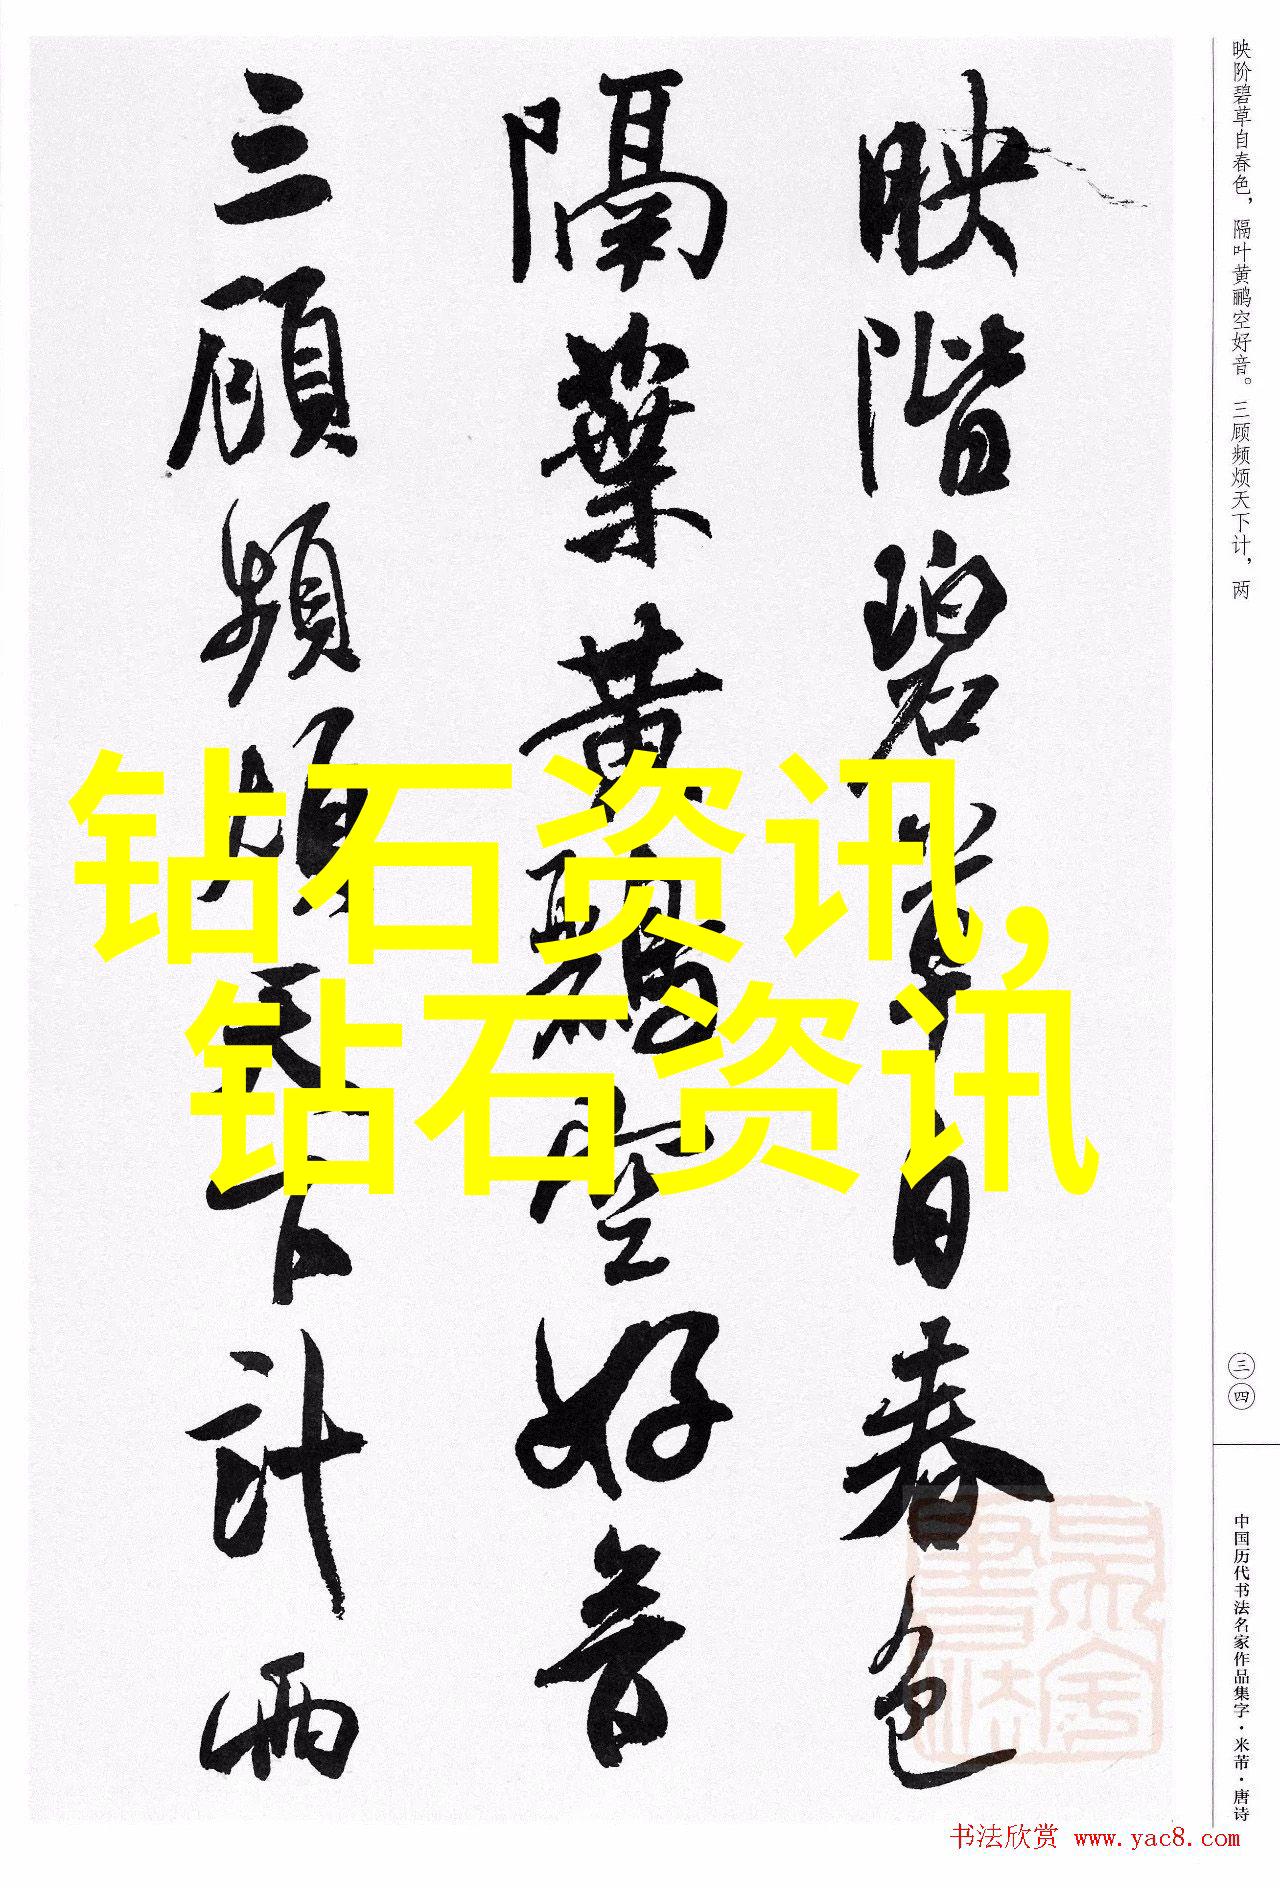 映階碧草自春色
隔葉黄鸝空好音
三顧頻煩天下計兩
钻石资讯,
钻石资讯
映阶碧草自春色，隔叶黄鹂空好音。三顾频烦天下计，两
三四
中国历代书法名家作品集字·米芾·唐诗
书法欣赏 www.yac8.com